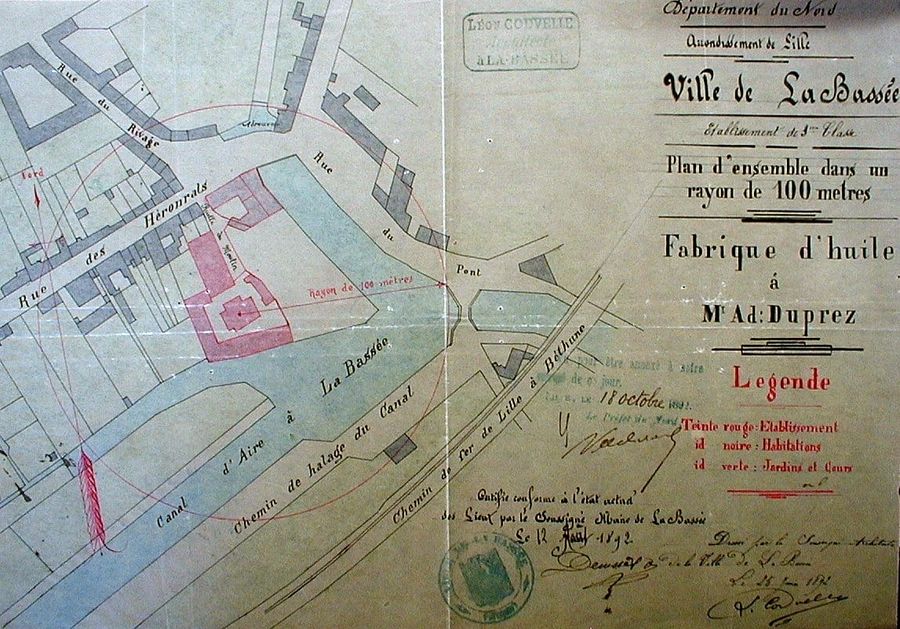 LÉON COUVELLE
Architecte
à LA-BASSÉE
Département du Nord
Arrondissement de Lille
Ville de La Bassée
Etablissement de 3me Classe
Plan d'ensemble dans un
rayon de 100 metres
Fabrique d'huile
á
Mr Ad: Duprez
Legende
Teinte rouge: Etablissement
id noire: Habitations
id verte: Jardins et Cours
Rue du Rivage
Abreuvoir
Nord
Rue des Héronrals
Moulin
Rue du Pont
Rayon de 100 métres
Canal d'Aire à La Bassée
Chemin de halage du Canal
Chemin de fer de Lille à Béthune
pour être annexé à notre
de ce jour.
LE 18 octobre 1892.
Le Préfet du Nord
Certifié conforme à l'état actuel
des Lieux par le Soussigné Maire de La Bassée
Le 12 1892
Dressé par le Soussigné Architecte
de la Ville de La Bassée
Le 25 1892
L. Couvelle